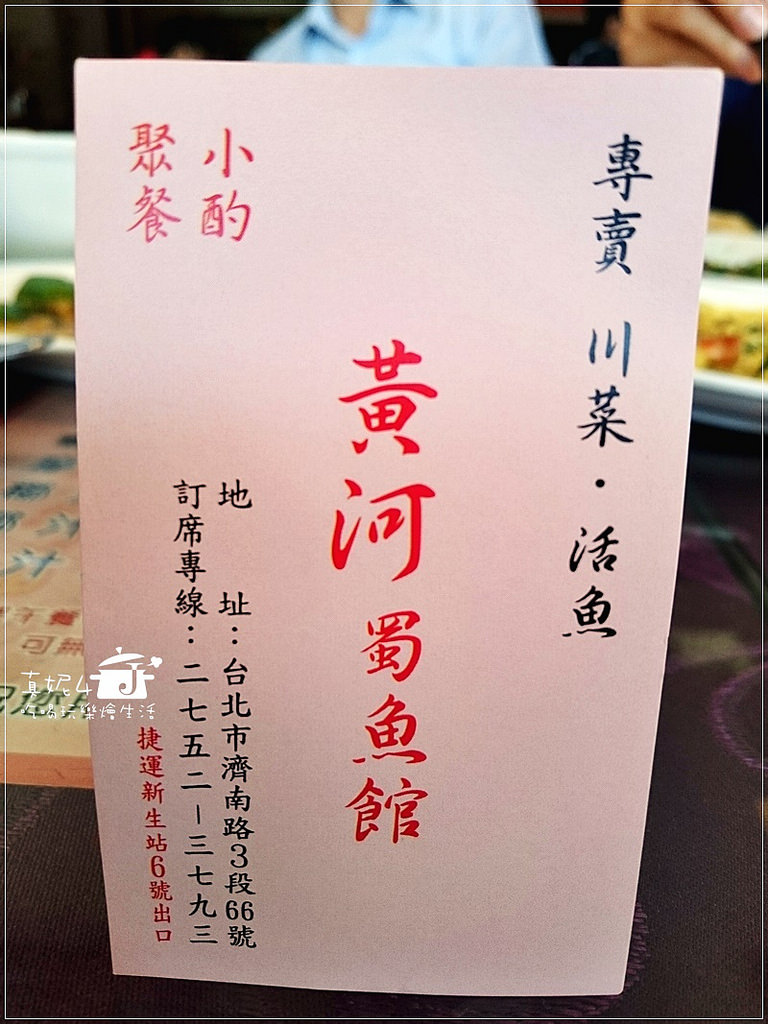 專賣 川菜・活魚
黃河蜀魚館
小酌
聚餐
地 址：台北市濟南路3段66號
訂席專線：二七五二－三七九三
捷運新生站6號出口
真妮4
吃喝玩樂燴生活
可無